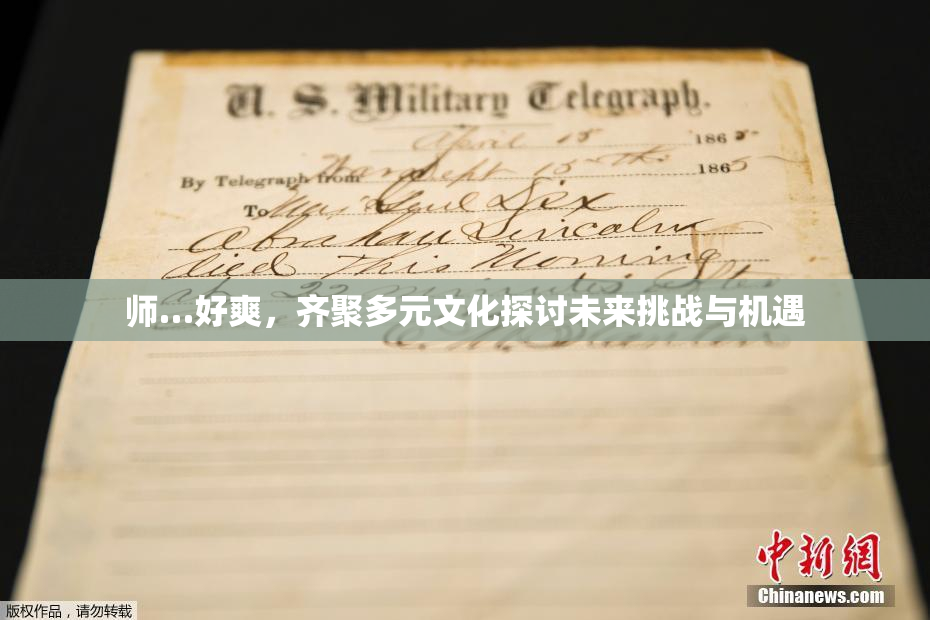 U. S. Military Telegraph.
April 15 1865
By Telegraph from War Dept 15th 1865
To Maj Genl Dix
Abraham Lincoln
died This Morning
22 minutes after
师...好爽，齐聚多元文化探讨未来挑战与机遇
中新网
Chinanews.com
版权作品，请勿转载